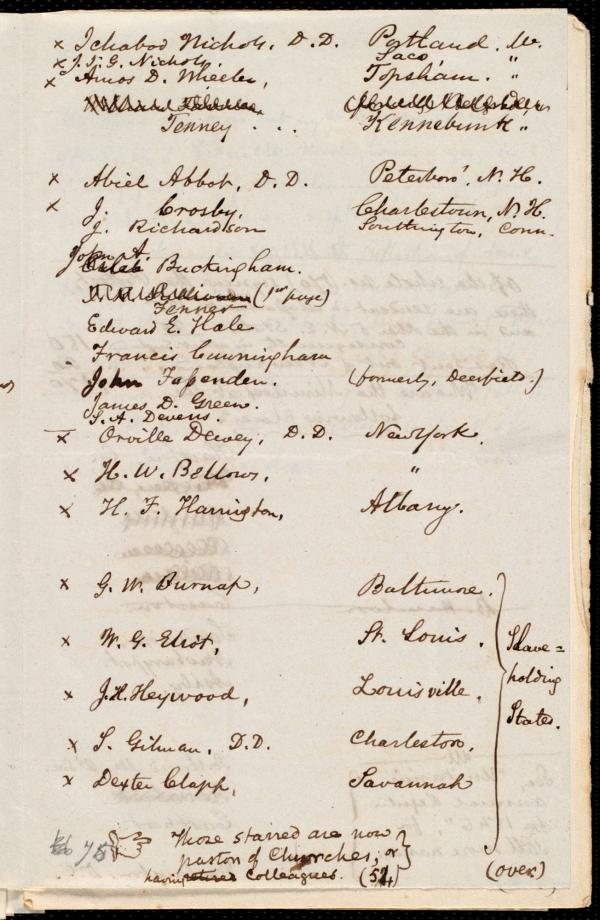 x Ichabod Nichols, D.D. Portland. Me.
x J. G. Nichols. Saco, "
x Amos D. Wheeler, Topsham. "
Tenney . . . Kennebunk "
x Abiel Abbot, D.D. Peterboro', N.H.
x J. Crosby, Charlestown, N.H.
J. Richardson Southington, Conn.
John A. Buckingham.
(1st page)
Tenney
Edward E. Hale
Francis Cunningham
John Fessenden. (formerly, Deerfield.)
James D. Green.
S. A. Devens.
x Orville Dewey, D.D. New York.
x H. W. Bellows, "
x H. F. Harrington, Albany.
x G. W. Burnap, Baltimore.
x W. G. Eliot, St. Louis.
x J. H. Heywood, Louisville.
x S. Gilman, D.D. Charleston.
x Dexter Clapp, Savannah
Slave=
holding
States.
75 Those starred are now
pastors of Churches, or
having retired colleagues. (52)
(over)